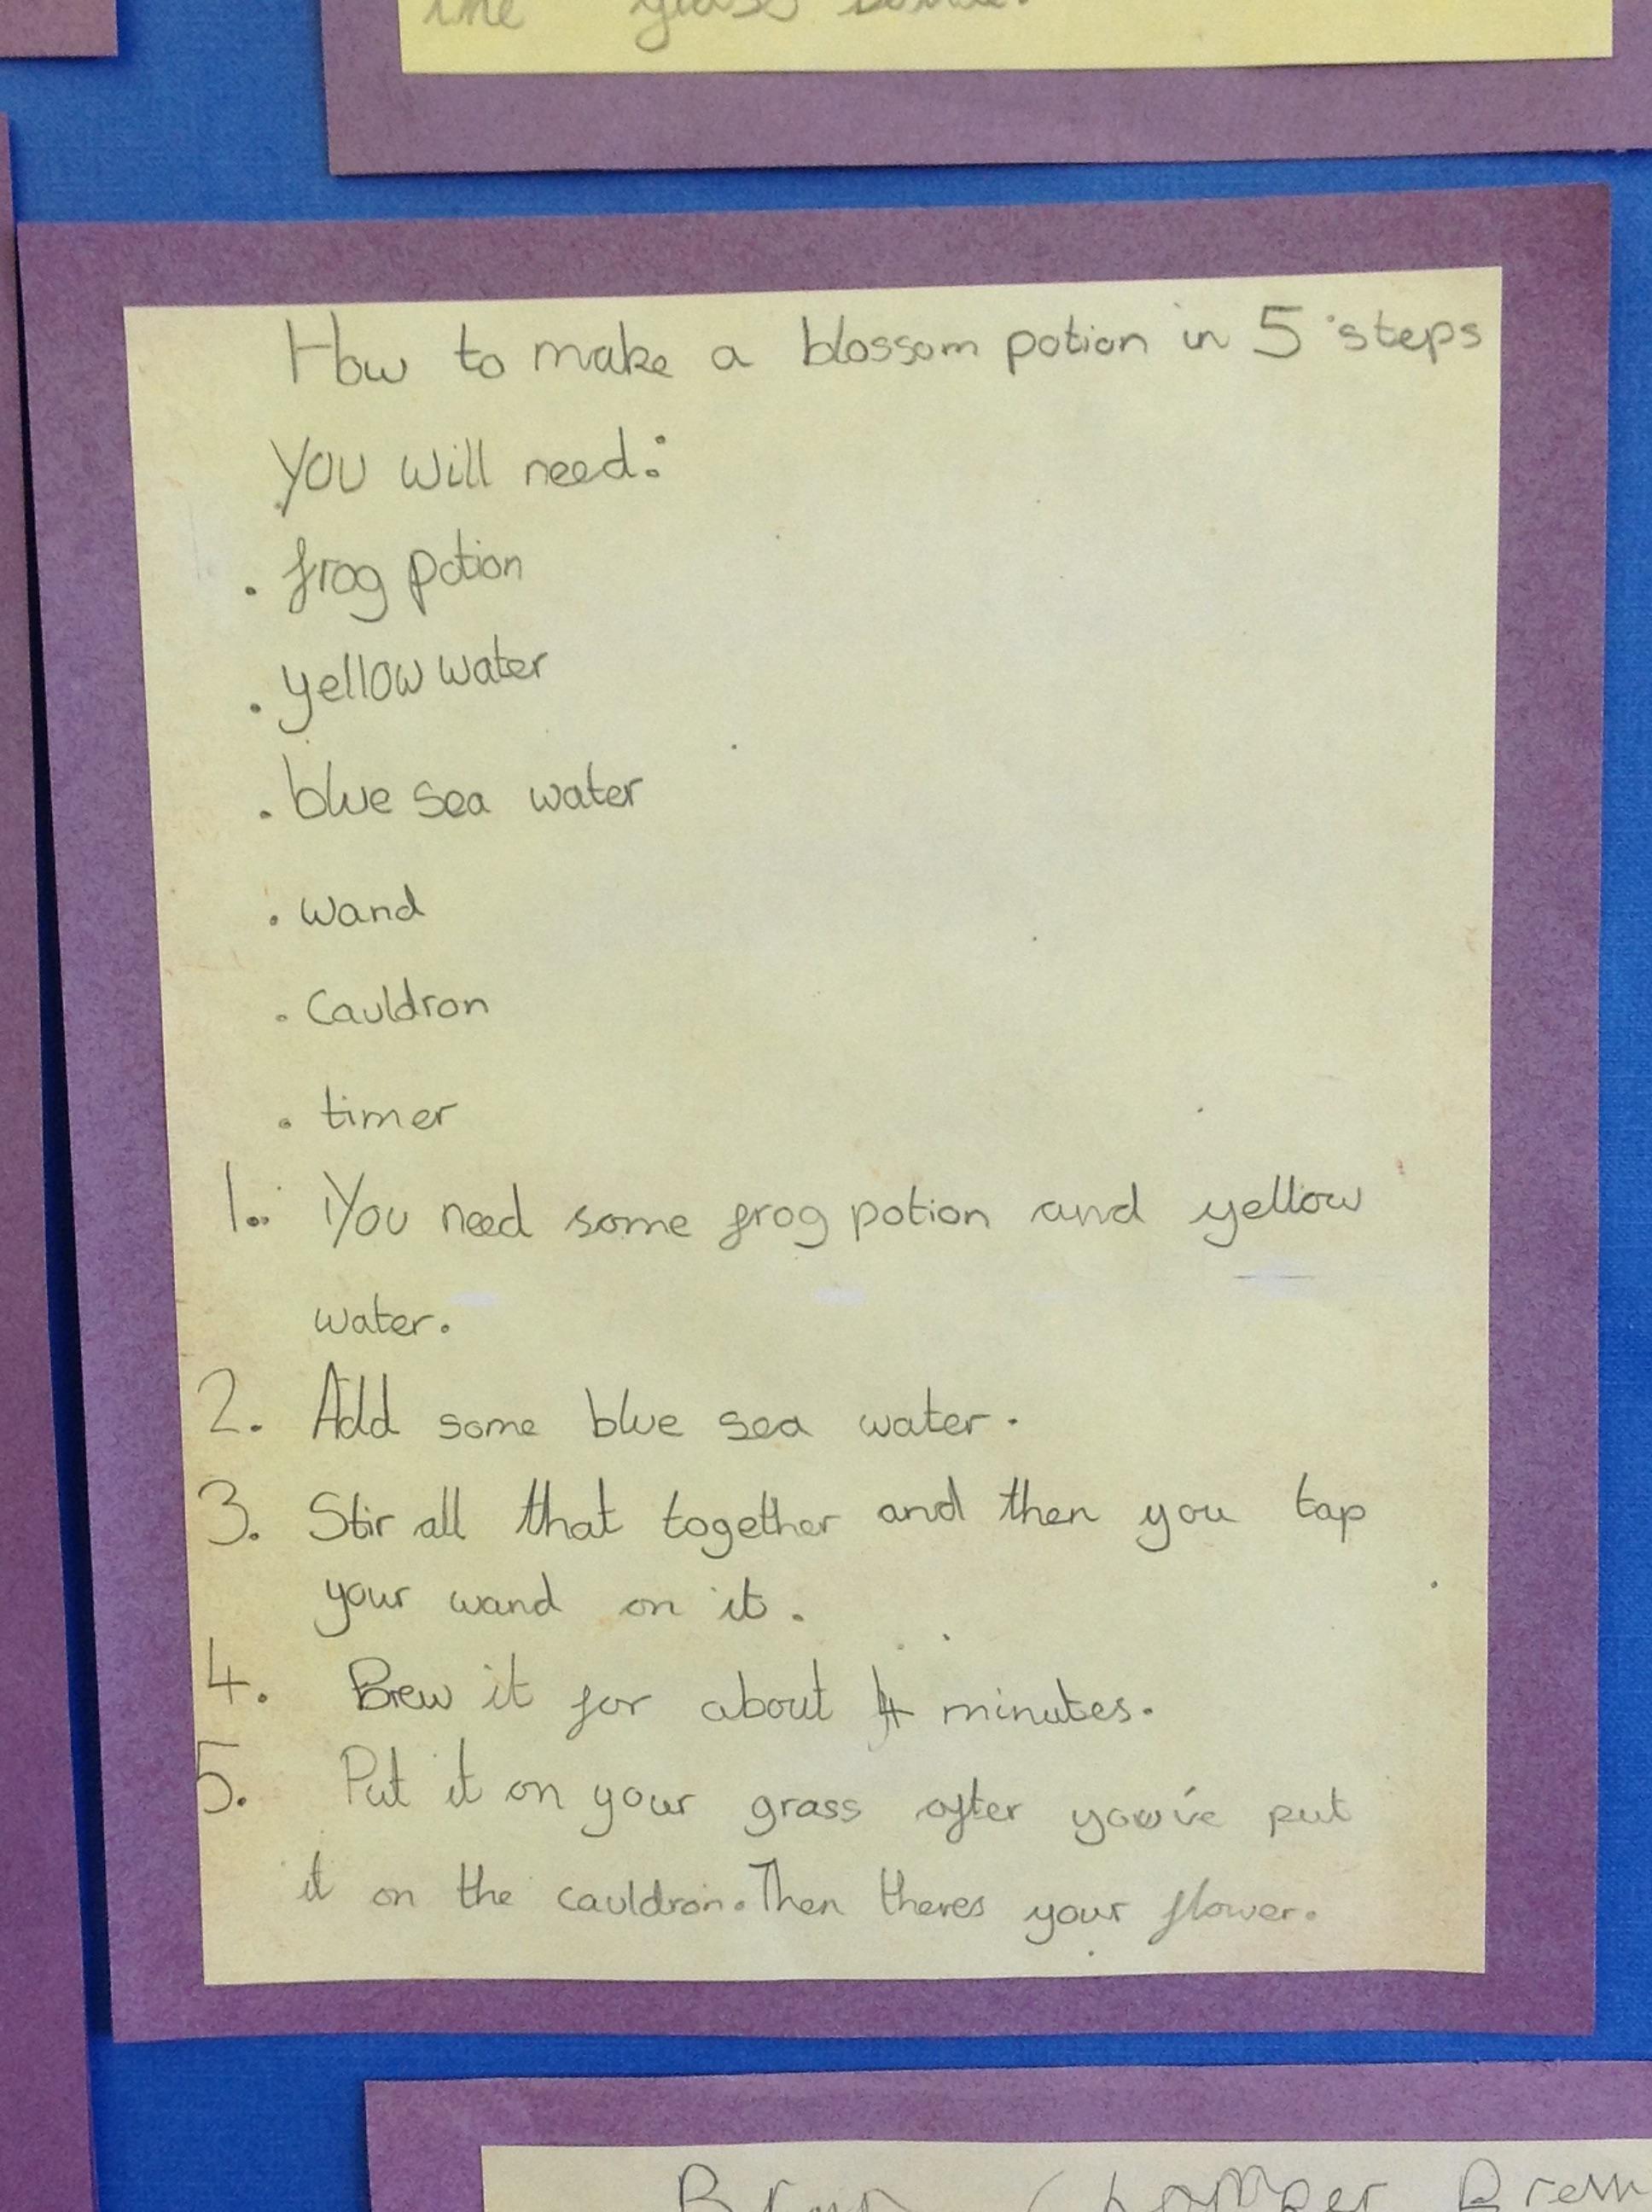 the glass
How to make a blossom potion in 5 steps
You will need:
. frog potion
. yellow water
. blue sea water
. wand
. Cauldron
. timer
1. You need some frog potion and yellow
water.
2. Add some blue sea water.
3. Stir all that together and then you tap
your wand on it.
4. Brew it for about 4 minutes.
5. Put it on your grass after you've put
it on the cauldron. Then theres your flower.